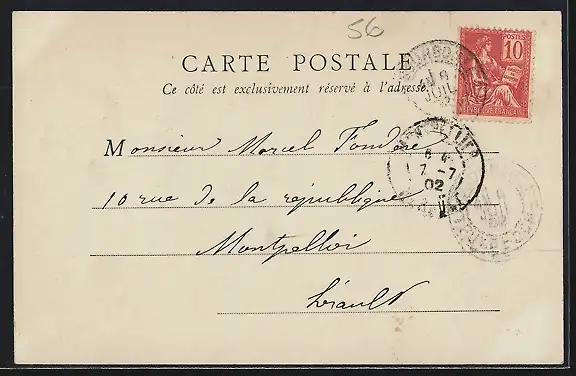 56
CARTE POSTALE
Ce côté est exclusivement réservé à l'adresse.
POSTES
10
RÉPUBLIQUE FRANÇAISE
Monsieur Marcel Fondère
10 rue de la république
Montpellier
Hérault
MONTPELLIER
6 4
7 - 7
02
HERAULT